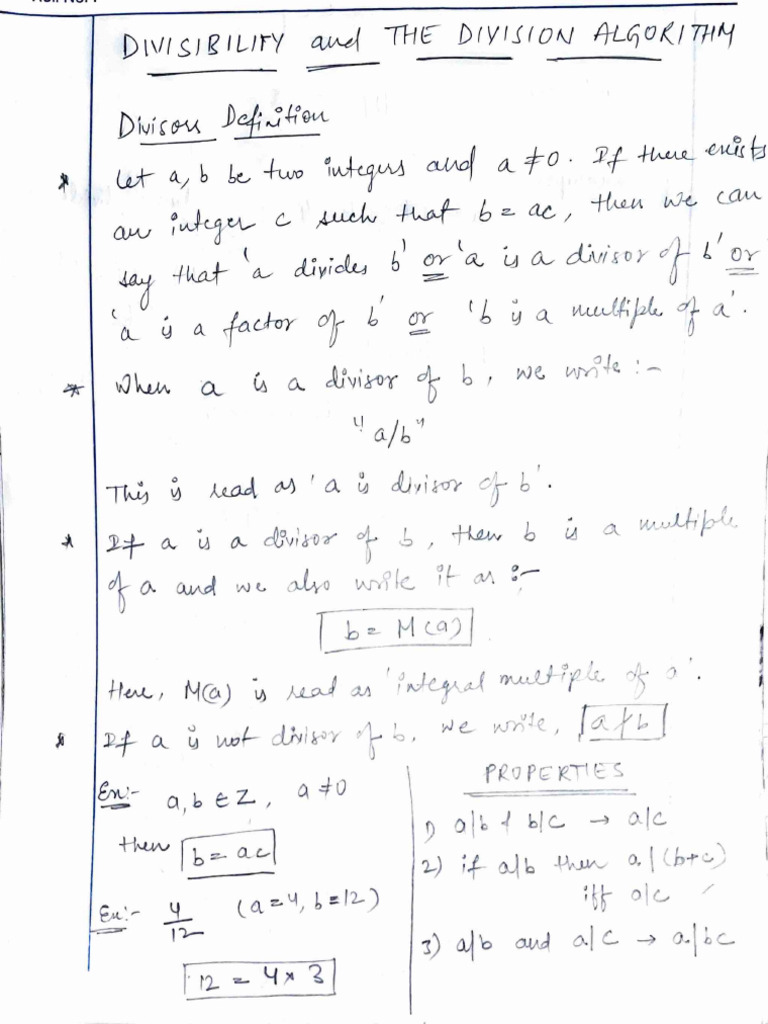 DIVISIBILITY and THE DIVISION ALGORITHM
Divisors Definition
* Let a, b be two integers and a ≠ 0. If there exists
an integer c such that b = ac, then we can
say that 'a divides b' or 'a is a divisor of b' or
'a is a factor of b' or 'b is a multiple of a'.
* When a is a divisor of b, we write :-
"a/b"
This is read as 'a is divisor of b'.
* If a is a divisor of b, then b is a multiple
of a and we also write it as :-
b = M(a)
Here, M(a) is read as 'integral multiple of a'.
* If a is not divisor of b, we write, a ∤ b
Ex:- a, b ∈ Z, a ≠ 0
then b = ac
Ex:- 4/12 (a = 4, b = 12)
12 = 4 × 3
PROPERTIES
1) a/b & b/c → a/c
2) if a/b then a/(b+c)
iff a/c
3) a/b and a/c → a/bc